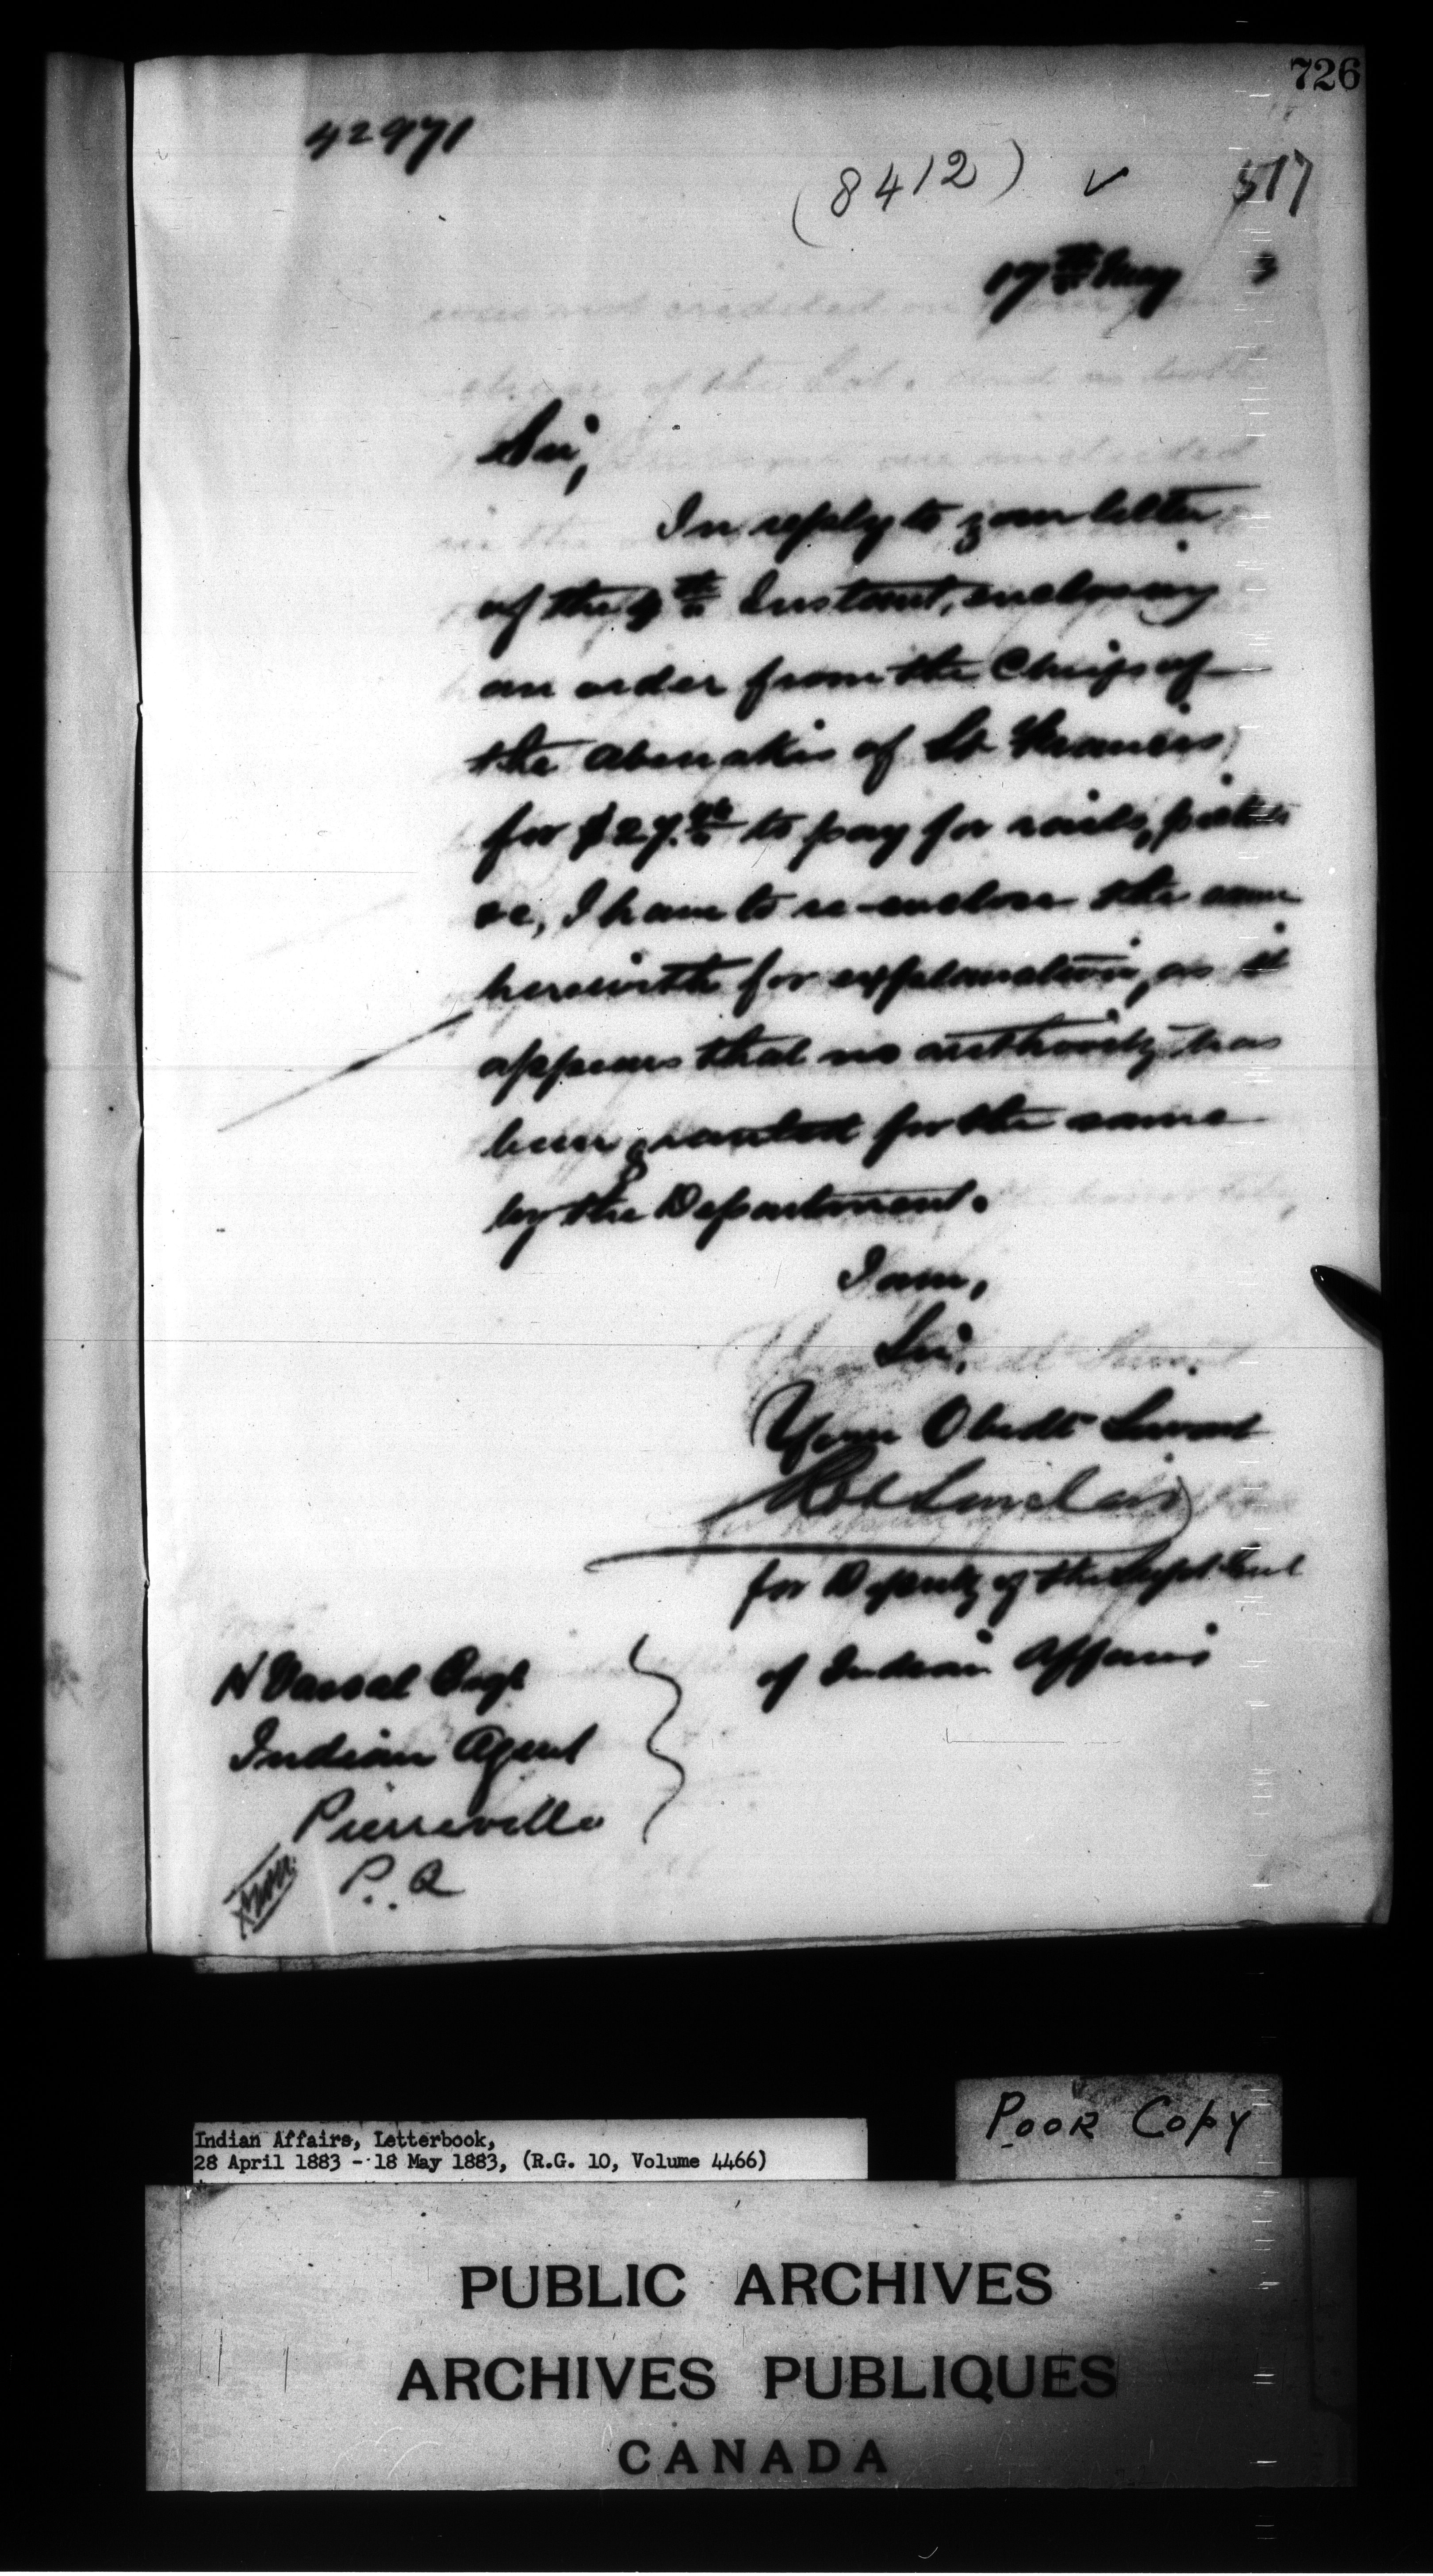 726
42971
(8412) ✓ 517
17th May 3
Sir,
In reply to your letter
of the 9th Instant, enclosing
an order from the Chiefs of
the Abenakis of St Francis,
for $27. to pay for rails, pickets
&c, I have to re-enclose the same
herewith for explanation, as it
appears that no authority has
been granted for the same
by the Department.
I am,
Sir,
Your Obedt Servant
Robt Sinclair
for Deputy of the Supt Genl
of Indian Affairs
H Vassal Esqr
Indian Agent
Pierreville
P. Q
Poor Copy
Indian Affairs, Letterbook,
28 April 1883 - 18 May 1883, (R.G. 10, Volume 4466)
PUBLIC ARCHIVES
ARCHIVES PUBLIQUES
CANADA